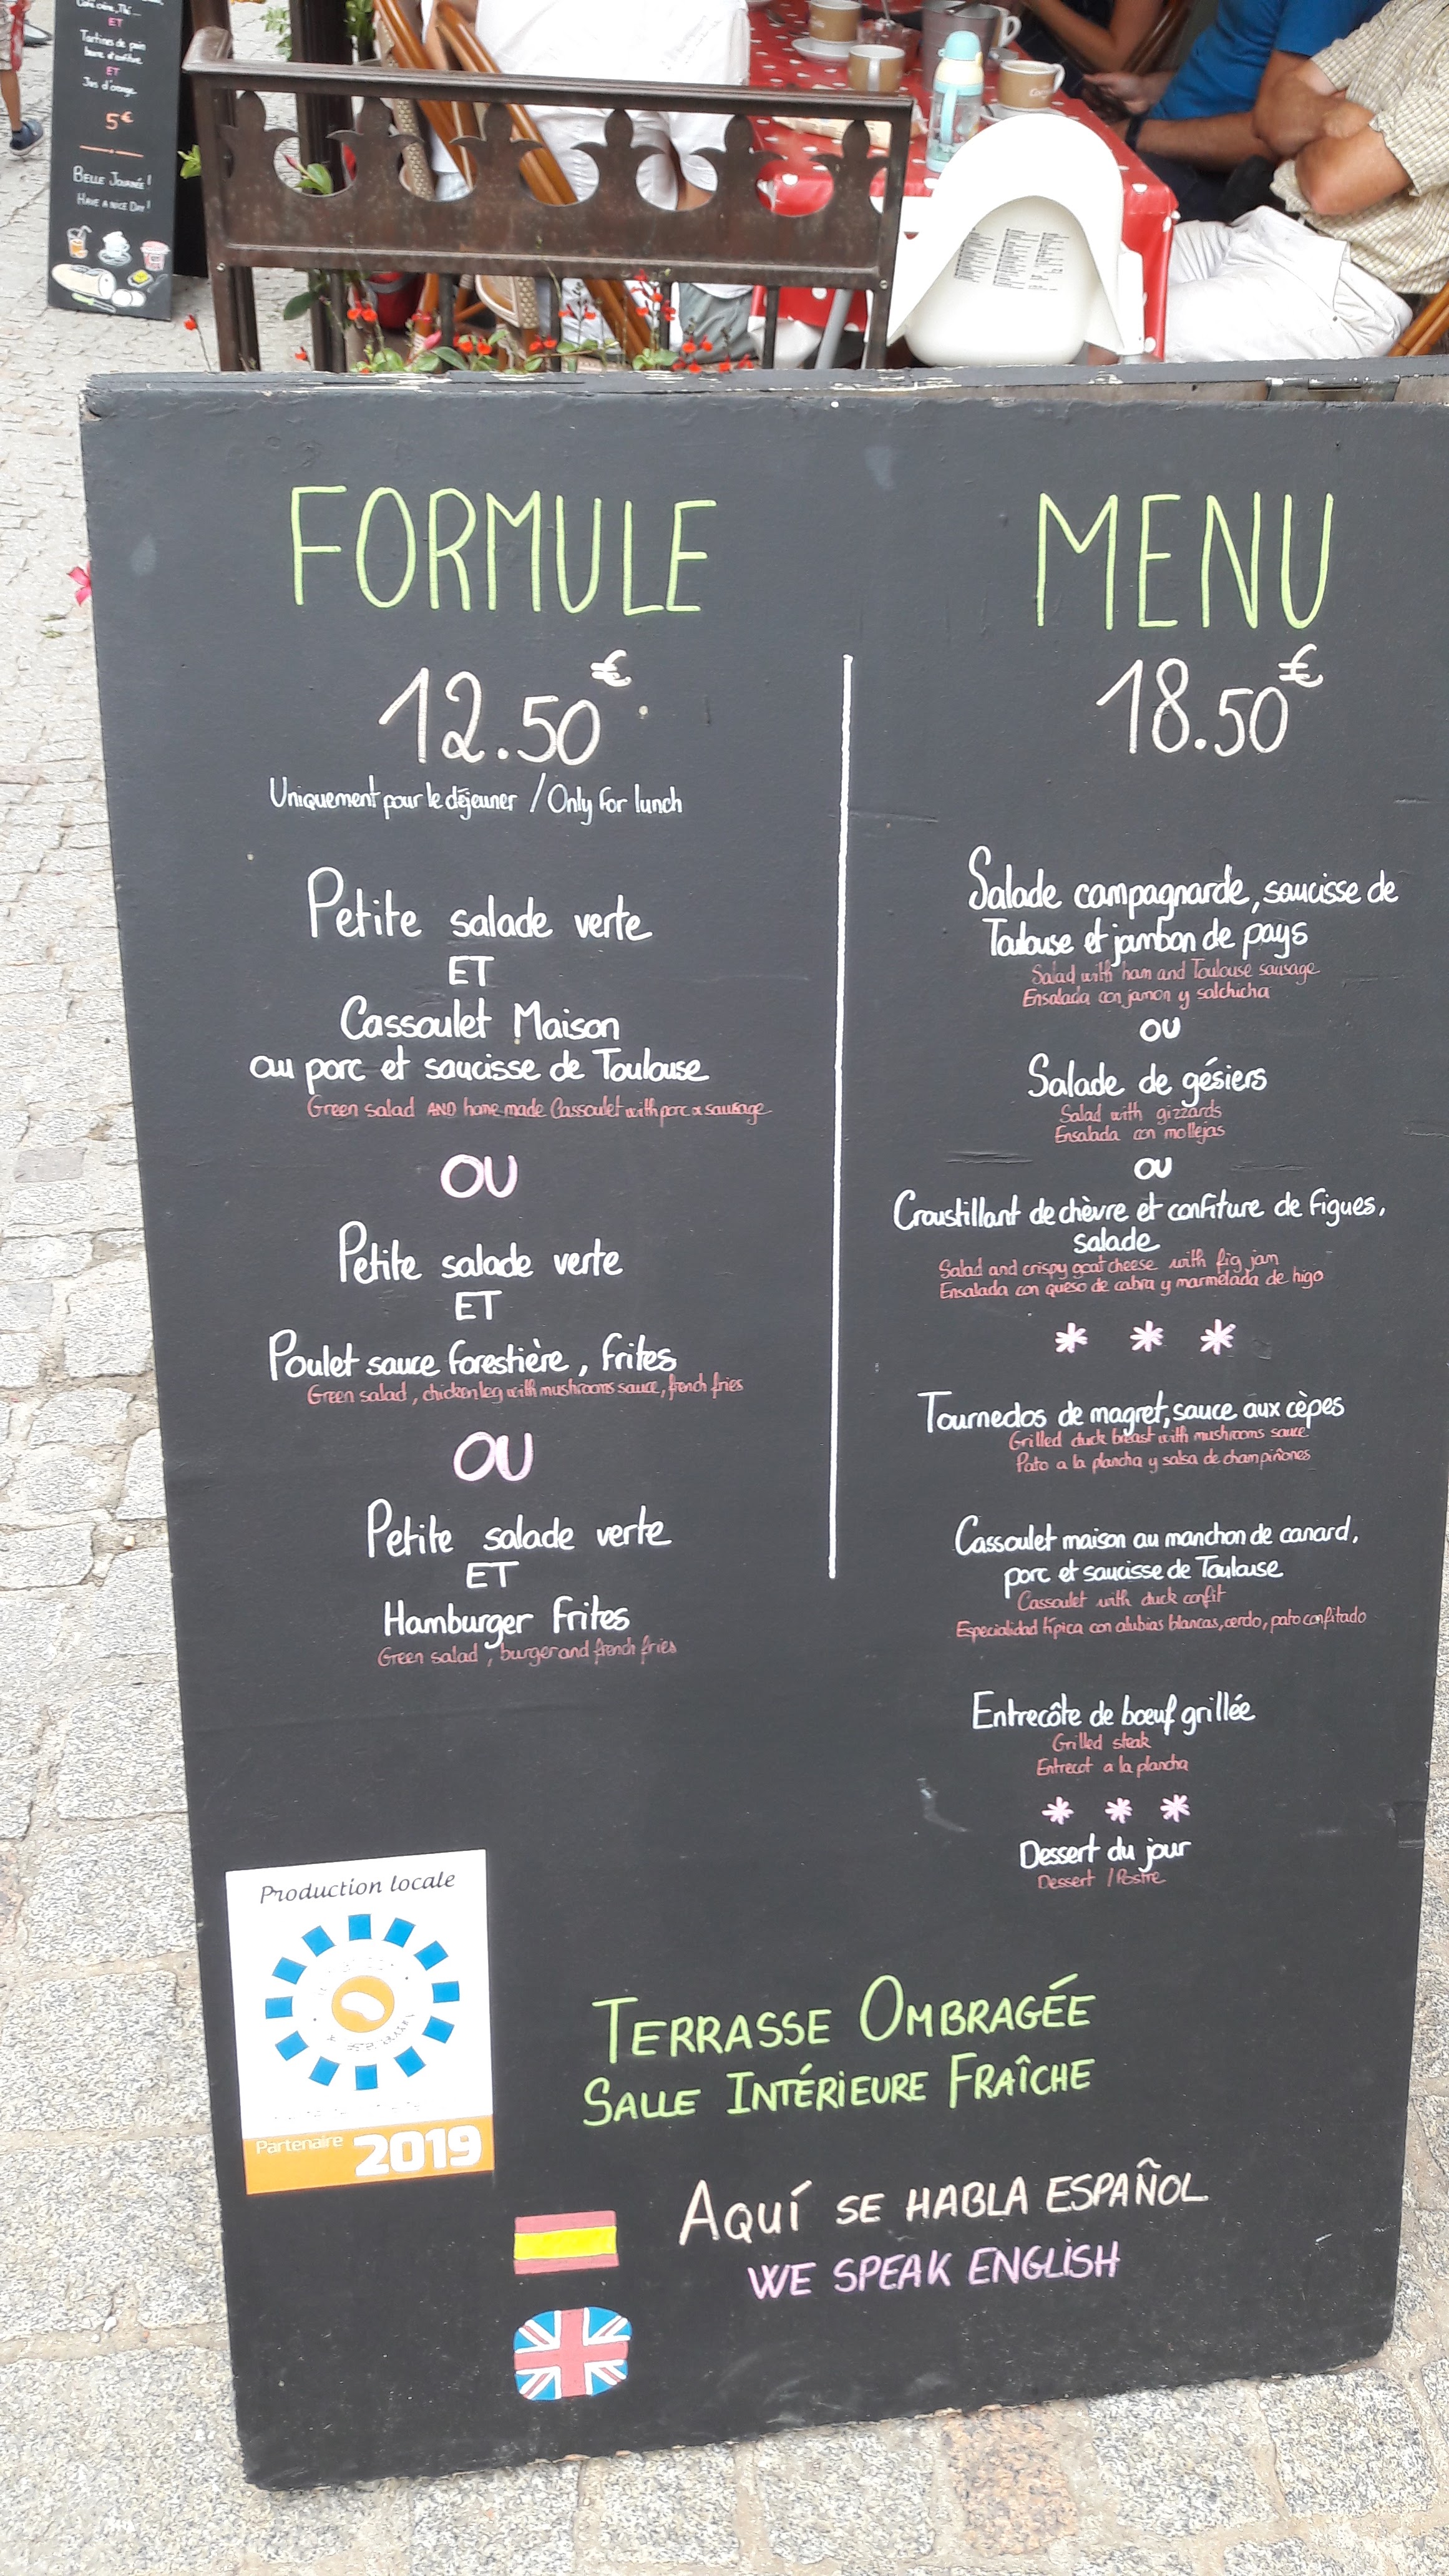 Tartines de pain
ET
Jus d'orange
5€
BELLE JOURNÉE!
HAVE A NICE DAY!
FORMULE
12.50€
Uniquement pour le déjeuner / Only for lunch
Petite salade verte
ET
Cassoulet Maison
au porc et saucisse de Toulouse
Green salad AND home made Cassoulet with porc & sausage
OU
Petite salade verte
ET
Poulet sauce forestière, frites
Green salad, chicken leg with mushrooms sauce, french fries
OU
Petite salade verte
ET
Hamburger Frites
Green salad, burger and french fries
MENU
18.50€
Salade campagnarde, saucisse de
Toulouse et jambon de pays
Salad with ham and Toulouse sausage
Ensalada con jamon y salchicha
OU
Salade de gésiers
Salad with gizzards
Ensalada con mollejas
OU
Croustillant de chèvre et confiture de figues,
salade
Salad and crispy goat cheese with fig jam
Ensalada con queso de cabra y marmelada de higo
* * *
Tournedos de magret, sauce aux cèpes
Grilled duck breast with mushrooms sauce
Pato a la plancha y salsa de champiñones
Cassoulet maison au manchon de canard,
porc et saucisse de Toulouse
Cassoulet with duck confit
Especialidad típica con alubias blancas, cerdo, pato confitado
Entrecôte de bœuf grillée
Grilled steak
Entrecot a la plancha
* * *
Dessert du jour
Dessert / Postre
Production locale
Partenaire 2019
TERRASSE OMBRAGÉE
SALLE INTÉRIEURE FRAÎCHE
AQUÍ SE HABLA ESPAÑOL
WE SPEAK ENGLISH